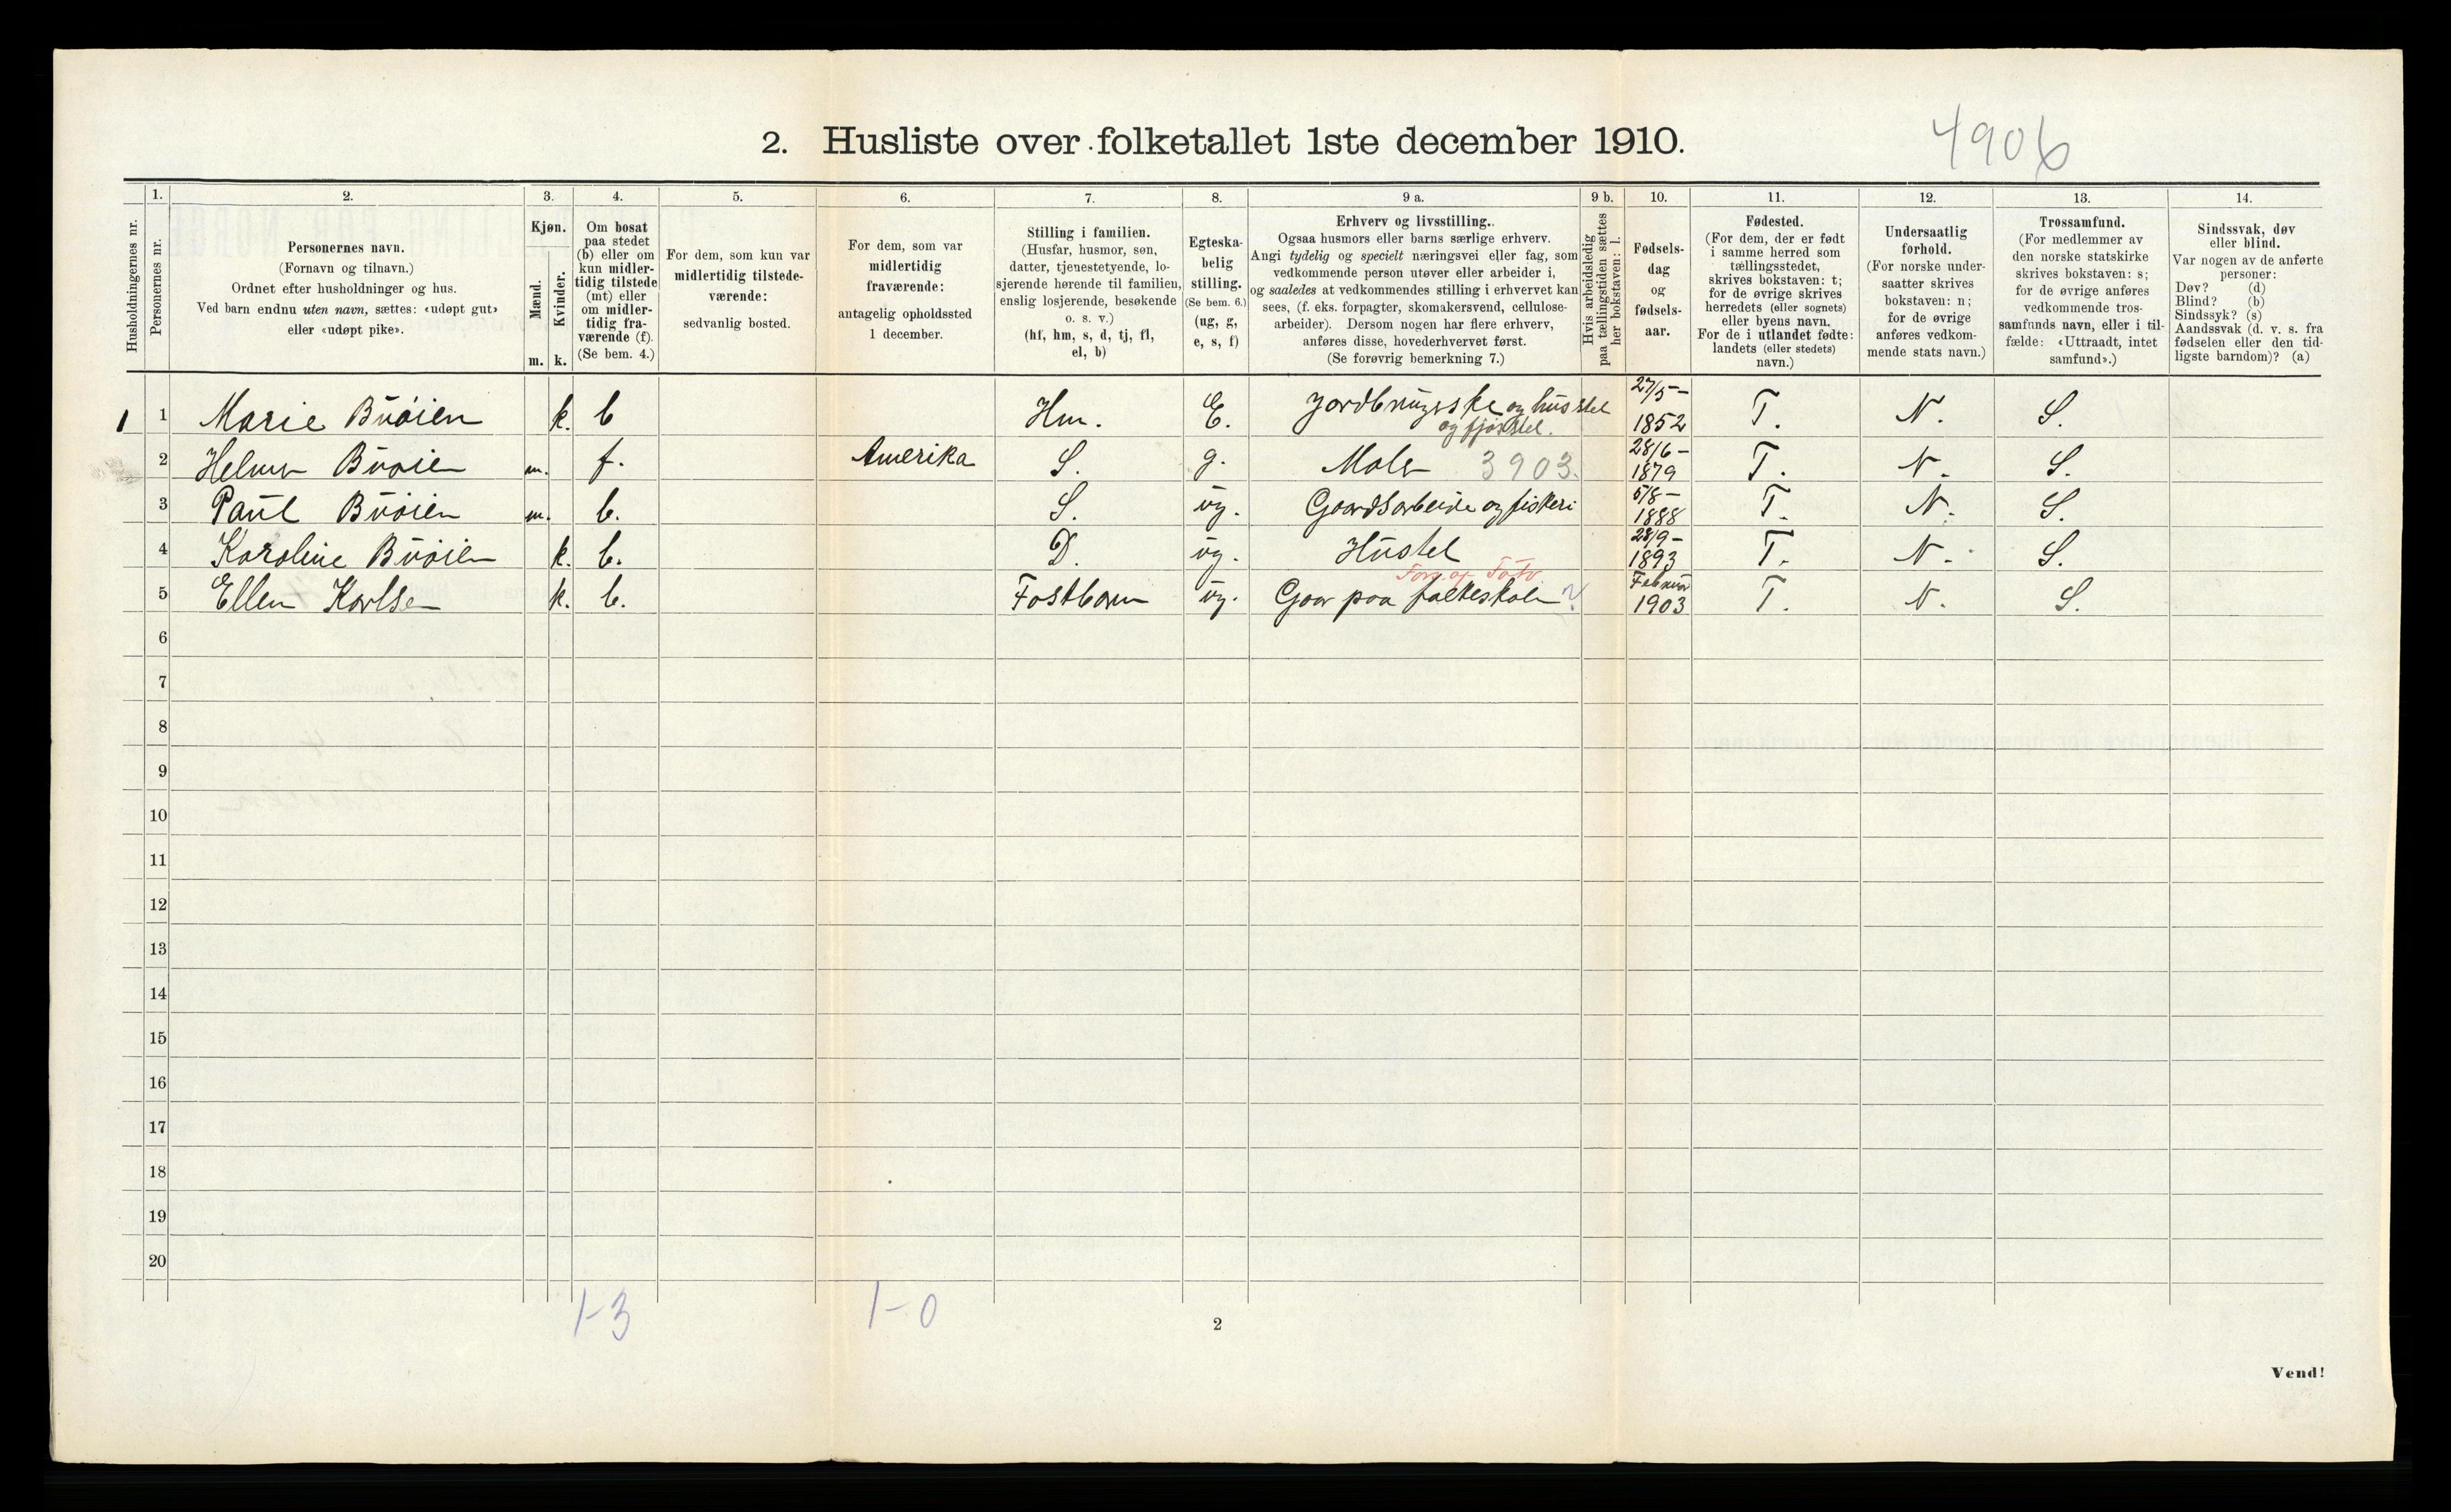 2. Husliste over folketallet 1ste december 1910.
4906
Husholdningernes nr.
1.
Personernes nr.
2.
Personernes navn.
(Fornavn og tilnavn.)
Ordnet efter husholdninger og hus.
Ved barn endnu uten navn, sættes: «udøpt gut»
eller «udøpt pike».
3.
Kjøn.
Mænd.
Kvinder.
m. k.
4.
Om bosat
paa stedet
(b) eller om
kun midler-
tidig tilstede
(mt) eller
om midler-
tidig fra-
værende (f).
(Se bem. 4.)
5.
For dem, som kun var
midlertidig tilstede-
værende:
sedvanlig bosted.
6.
For dem, som var
midlertidig
fraværende:
antagelig opholdssted
1 december.
7.
Stilling i familien.
(Husfar, husmor, søn,
datter, tjenestetyende, lo-
sjerende hørende til familien,
enslig losjerende, besøkende
o. s. v.)
(hf, hm, s, d, tj, fl,
el, b)
8.
Egteska-
belig
stilling.
(Se bem. 6.)
(ug, g,
e, s, f)
9 a.
Erhverv og livsstilling.
Ogsaa husmors eller barns særlige erhverv.
Angi tydelig og specielt næringsvei eller fag, som
vedkommende person utøver eller arbeider i,
og saaledes at vedkommendes stilling i erhvervet kan
sees, (f. eks. forpagter, skomakersvend, cellulose-
arbeider). Dersom nogen har flere erhverv,
anføres disse, hovederhvervet først.
(Se forøvrig bemerkning 7.)
9 b.
Hvis arbeidsledig
paa tællingstiden sættes
her bokstaven: l.
10.
Fødsels-
dag
og
fødsels-
aar.
11.
Fødested.
(For dem, der er født
i samme herred som
tællingsstedet,
skrives bokstaven: t;
for de øvrige skrives
herredets (eller sognets)
eller byens navn.
For de i utlandet fødte:
landets (eller stedets)
navn.)
12.
Undersaatlig
forhold.
(For norske under-
saatter skrives
bokstaven: n;
for de øvrige
anføres vedkom-
mende stats navn.)
13.
Trossamfund.
(For medlemmer av
den norske statskirke
skrives bokstaven: s;
for de øvrige anføres
vedkommende tros-
samfunds navn, eller i til-
fælde: «Uttraadt, intet
samfund».)
14.
Sindssvak, døv
eller blind.
Var nogen av de anførte
personer:
Døv? (d)
Blind? (b)
Sindssyk? (s)
Aandssvak (d. v. s. fra
fødselen eller den tid-
ligste barndom)? (a)
1 1 Marie Buøien k. b Hm. E. Jordbrugerske og husstel og fjøsstel. 27/5- 1852 T. N. S.
2 Helmer Buøien m. f. Amerika S. g. Maler 3903. 28/6- 1879 T. N. S.
3 Paul Buøien m. b. S. ug. Gaardsarbeide og fiskeri 5/8- 1888 T. N. S.
4 Karoline Buøien k. b. D. ug. Husstel 28/9- 1893 T. N. S.
5 Ellen Karlsen k. b. Fostbarn ug. Forg. af Fattv. Gaar paa folkeskolen Februar 1903 T. N. S.
6
7
8
9
10
11
12
13
14
15
16
17
18
19
20
1-3
1-0
2
Vend!